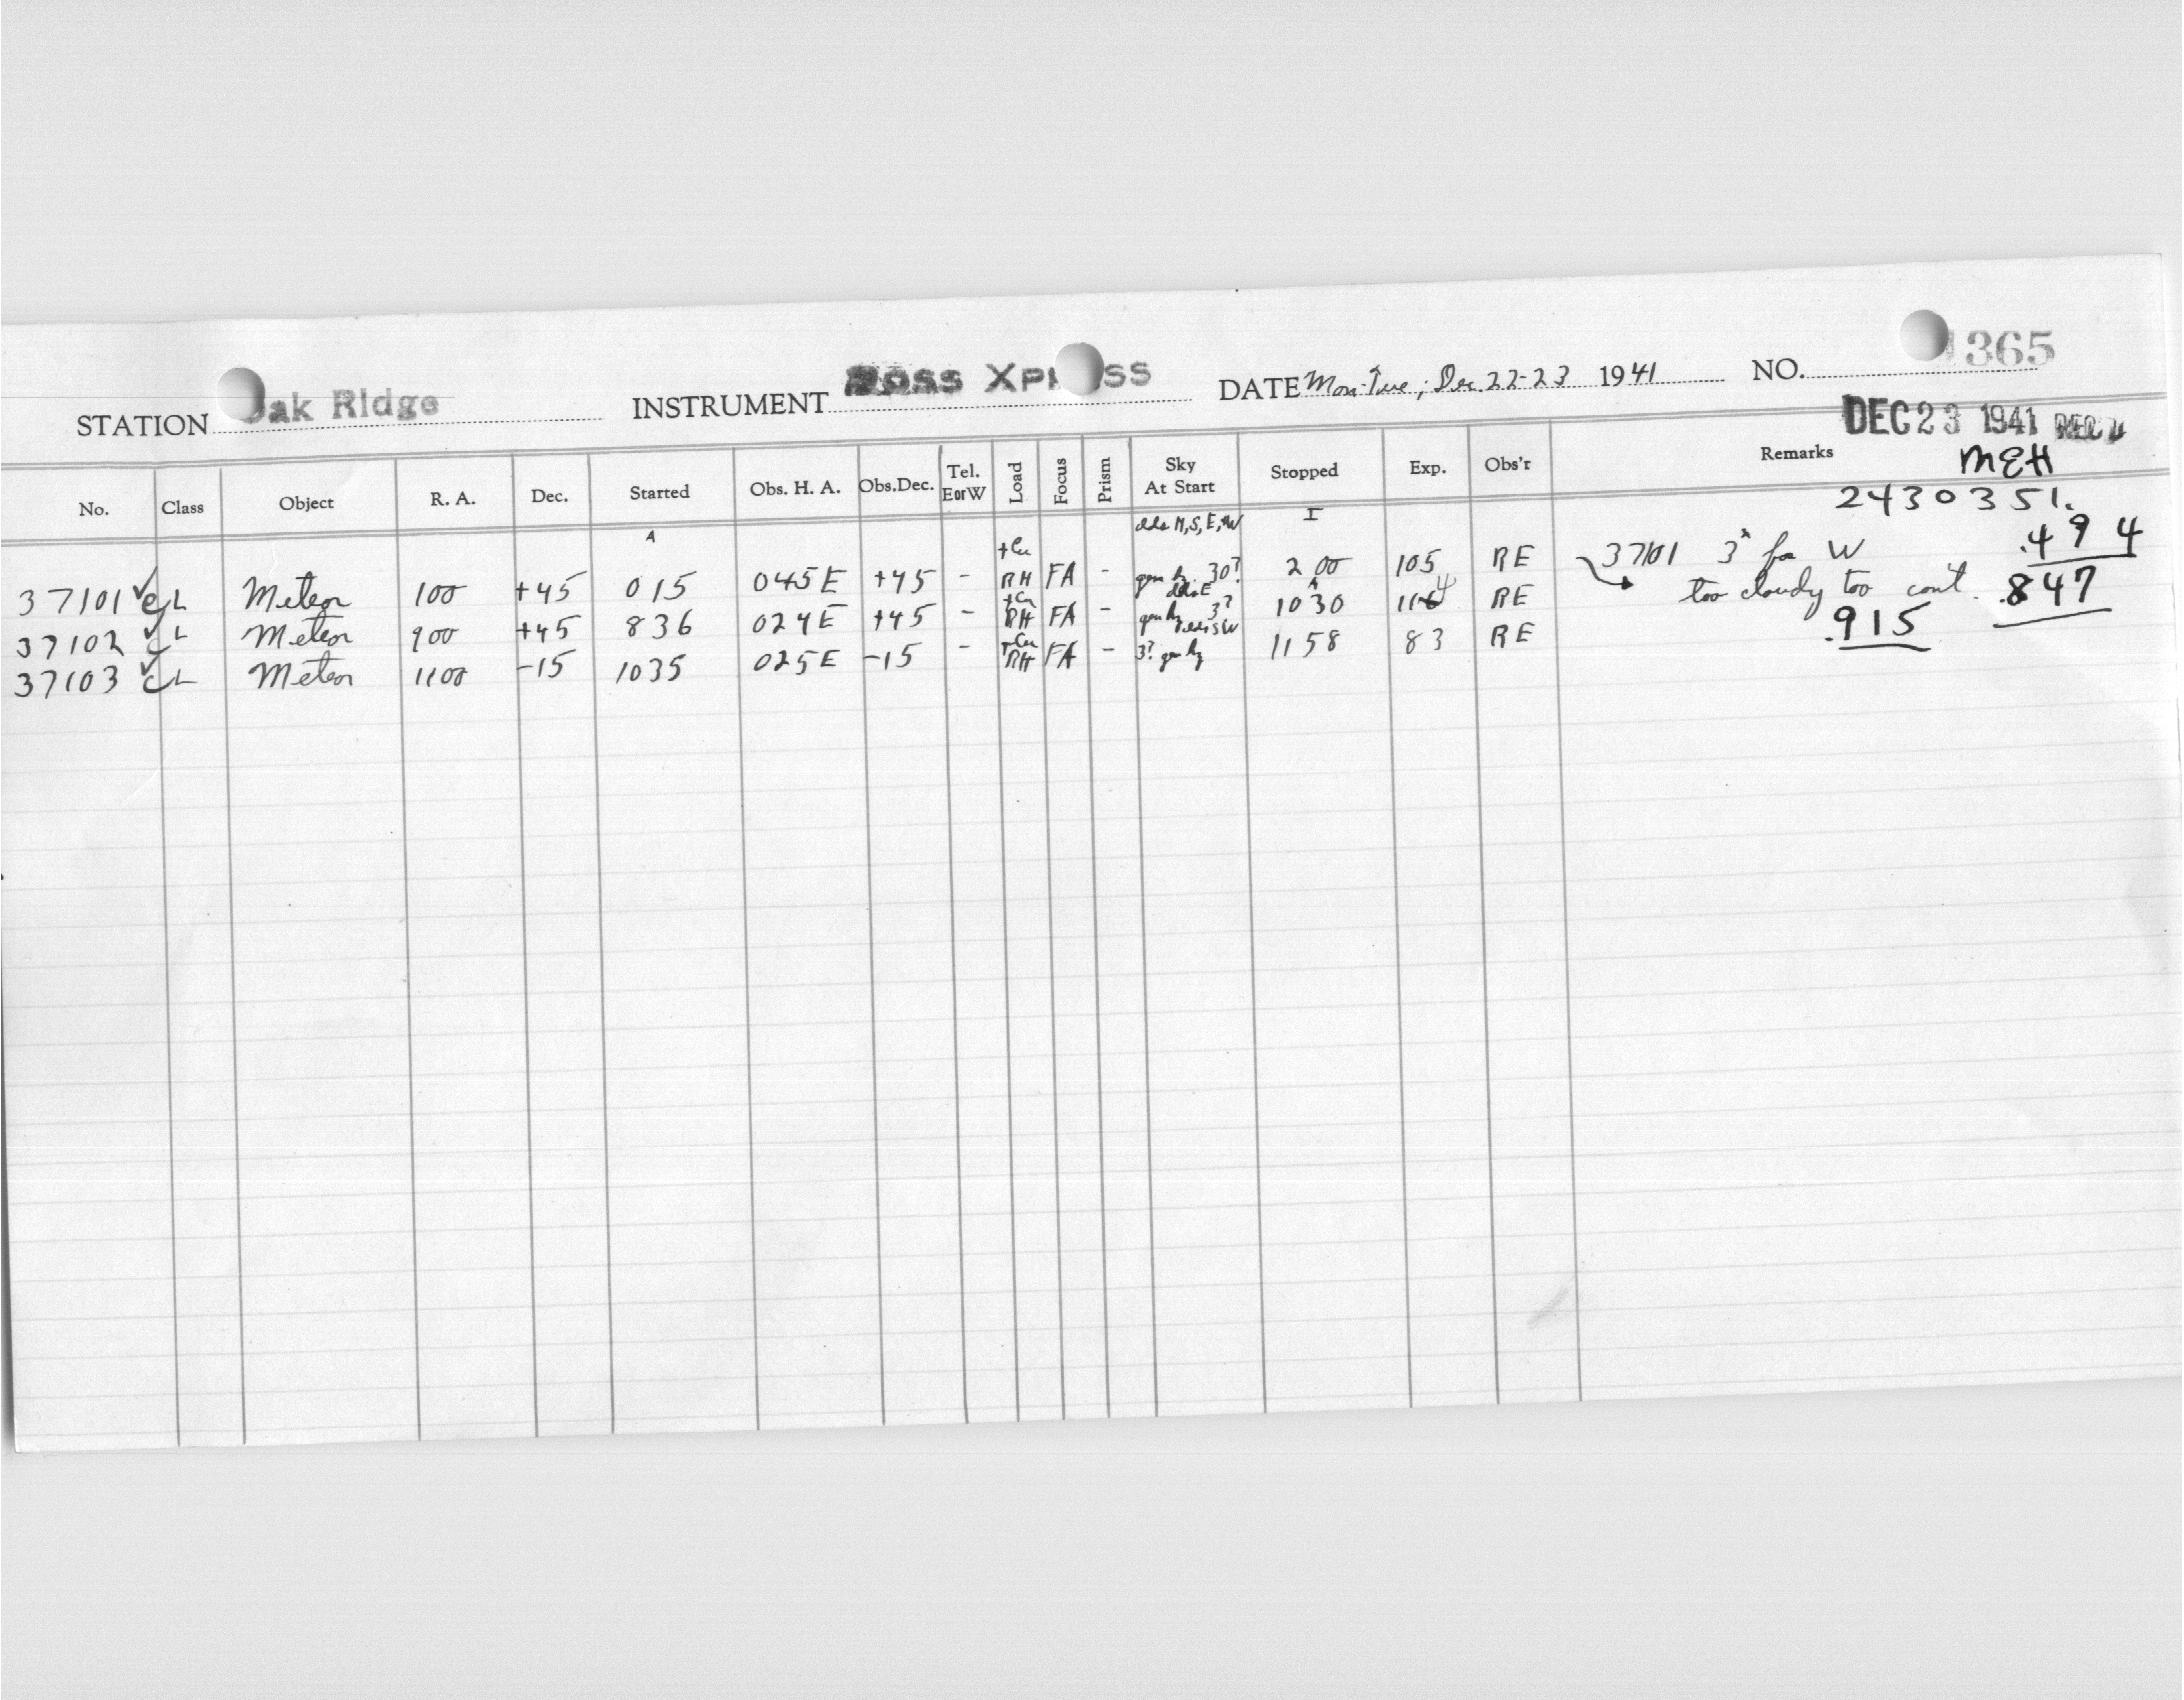 STATION Oak Ridge INSTRUMENT Ross Xpress DATE Mon-Tue, Dec 22-23 1941 NO. 1365
DEC 23 1941
No. Class Object R. A. Dec. Started Obs. H. A. Obs.Dec. Tel. EorW Load Focus Prism Sky At Start Stopped Exp. Obs'r Remarks
MEH
2430351.
A clds N,S,E,W I
37101 ✓ CL Meteor 100 +45 015 045E +45 - +Cu RH FA - 30? 200 105 RE 37101 3x for W .494
A
37102 ✓ CL Meteor 900 +45 836 024E +45 - +Cu RH FA - clds E 3? 1030 114 RE too cloudy too con't. .847
37103 ✓ CL Meteor 1100 -15 1035 025E -15 - +Cu RH FA - SW 3? 1158 83 RE .915